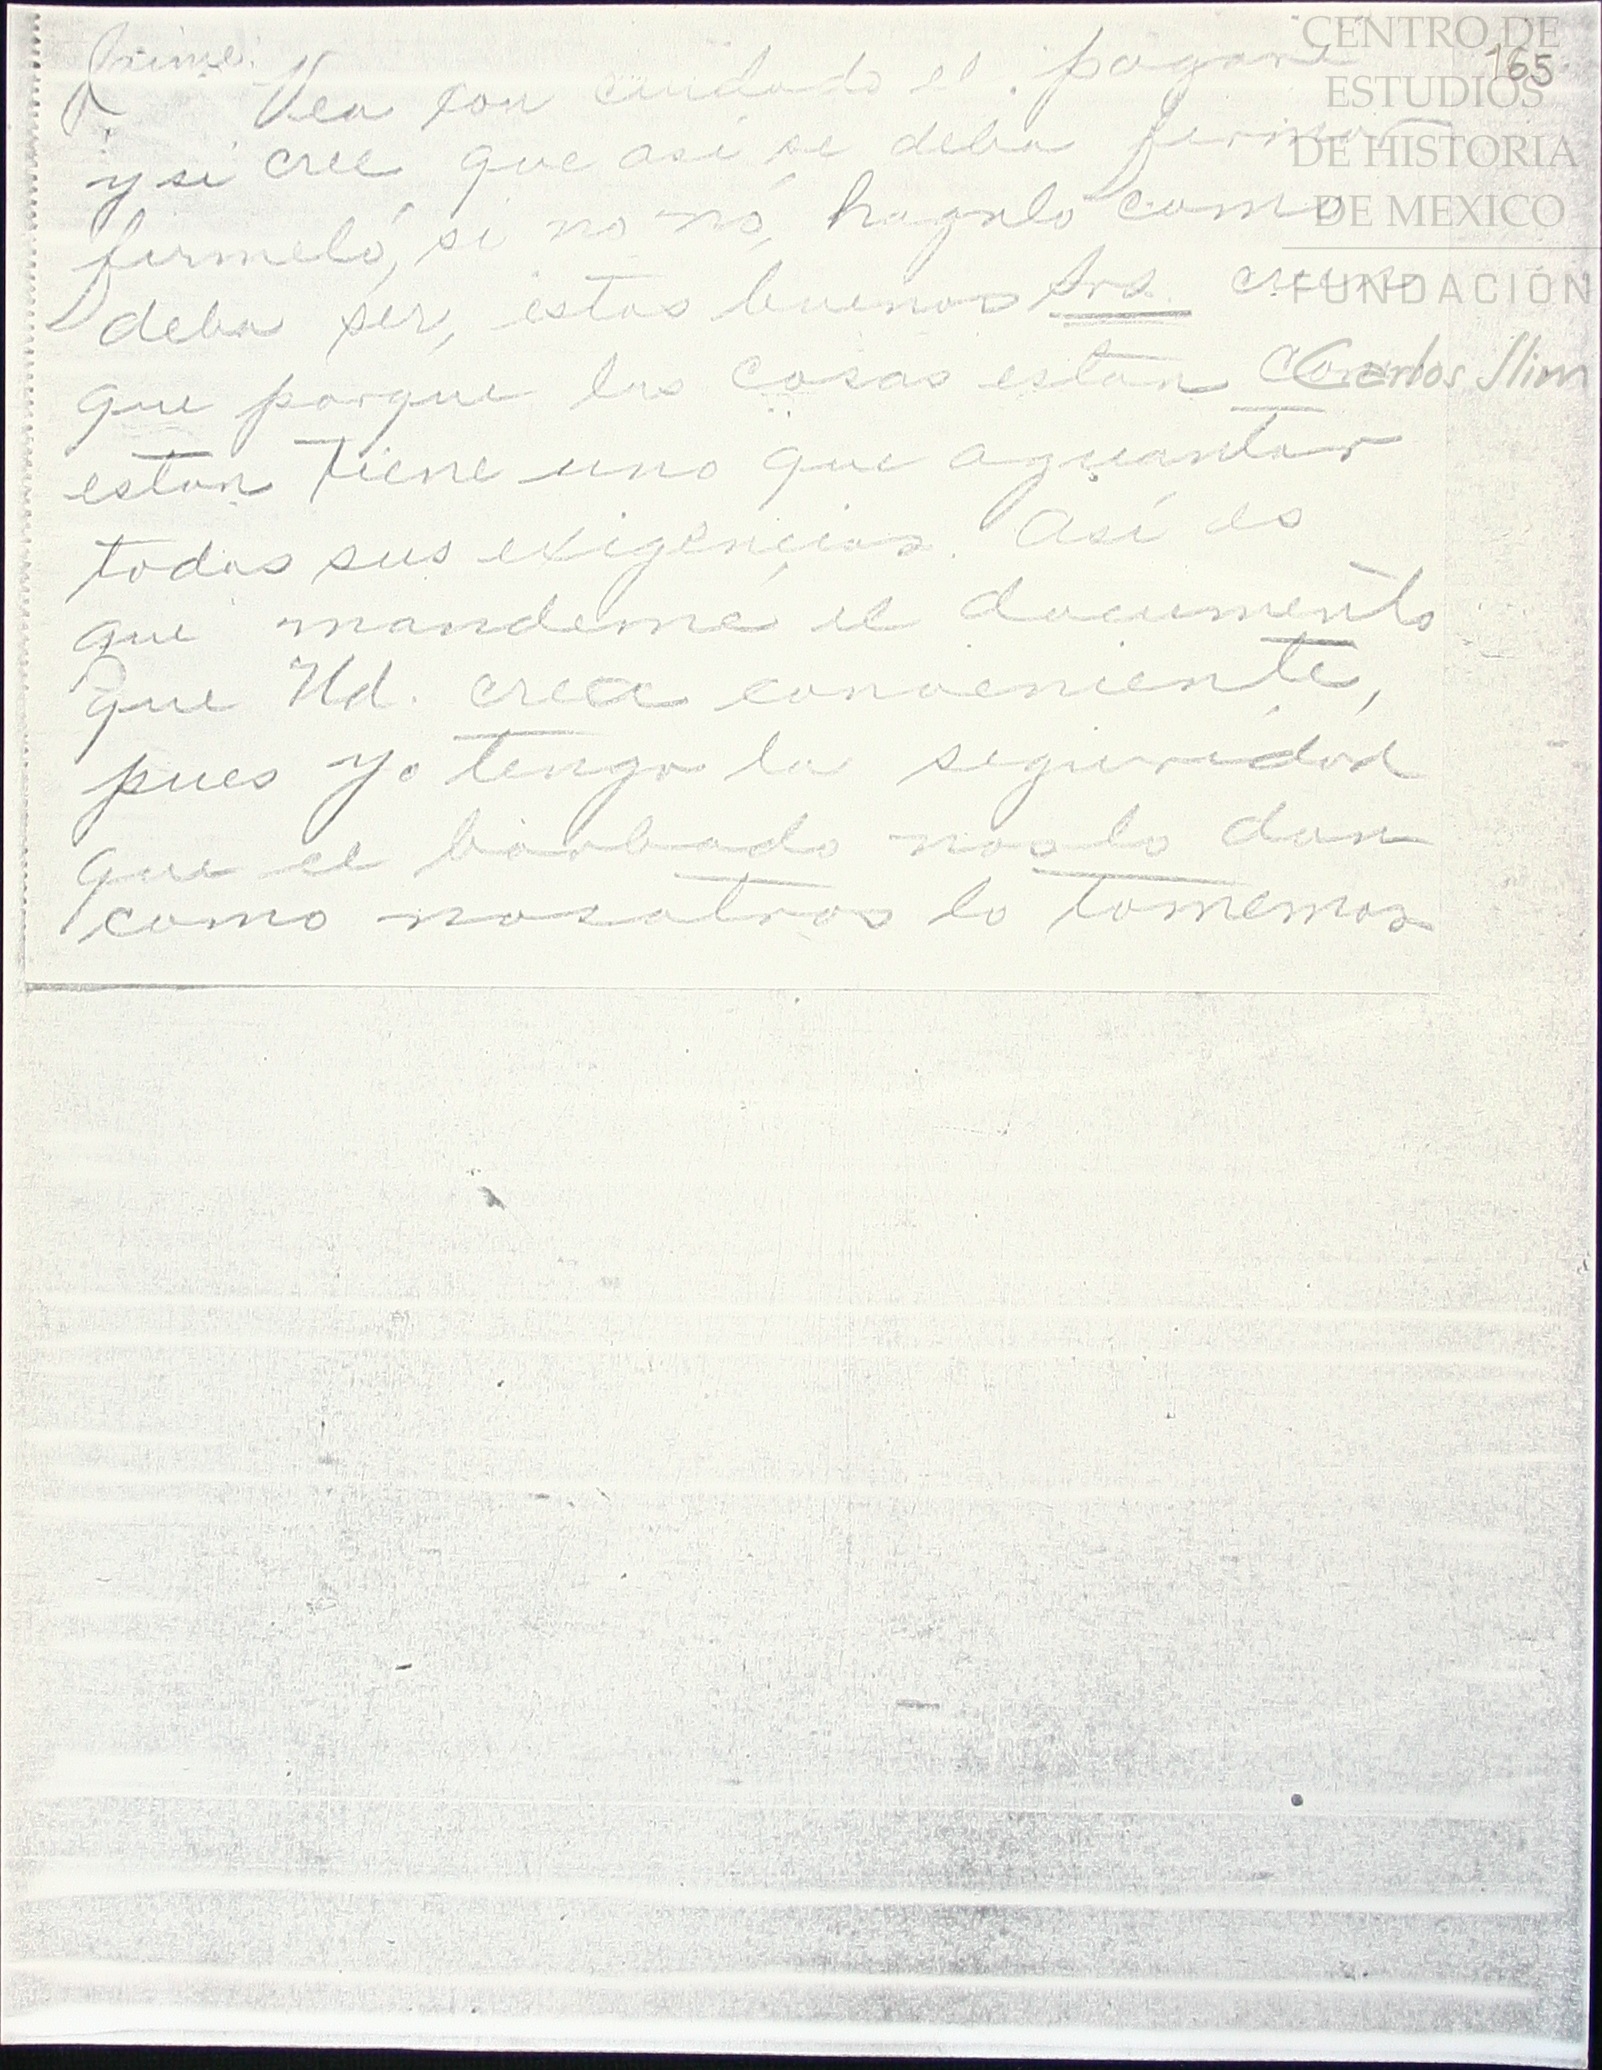 Jaime:
Vea con cuidado el pagaré
y si cree que asi se deba firmar
firmeló, si no nó, hagalo como
deba ser, estos buenos Srs. creen
que porque las cosas estan como
estan tiene uno que aguantar
todas sus exigencias. Así es
que mandemé el documento
que Ud. crea conveniente,
pues yo tengo la seguridad
que el barbado nos lo dan
como nosotros lo tomemos
165
CENTRO DE
ESTUDIOS
DE HISTORIA
DE MEXICO
FUNDACIÓN
Carlos Slim